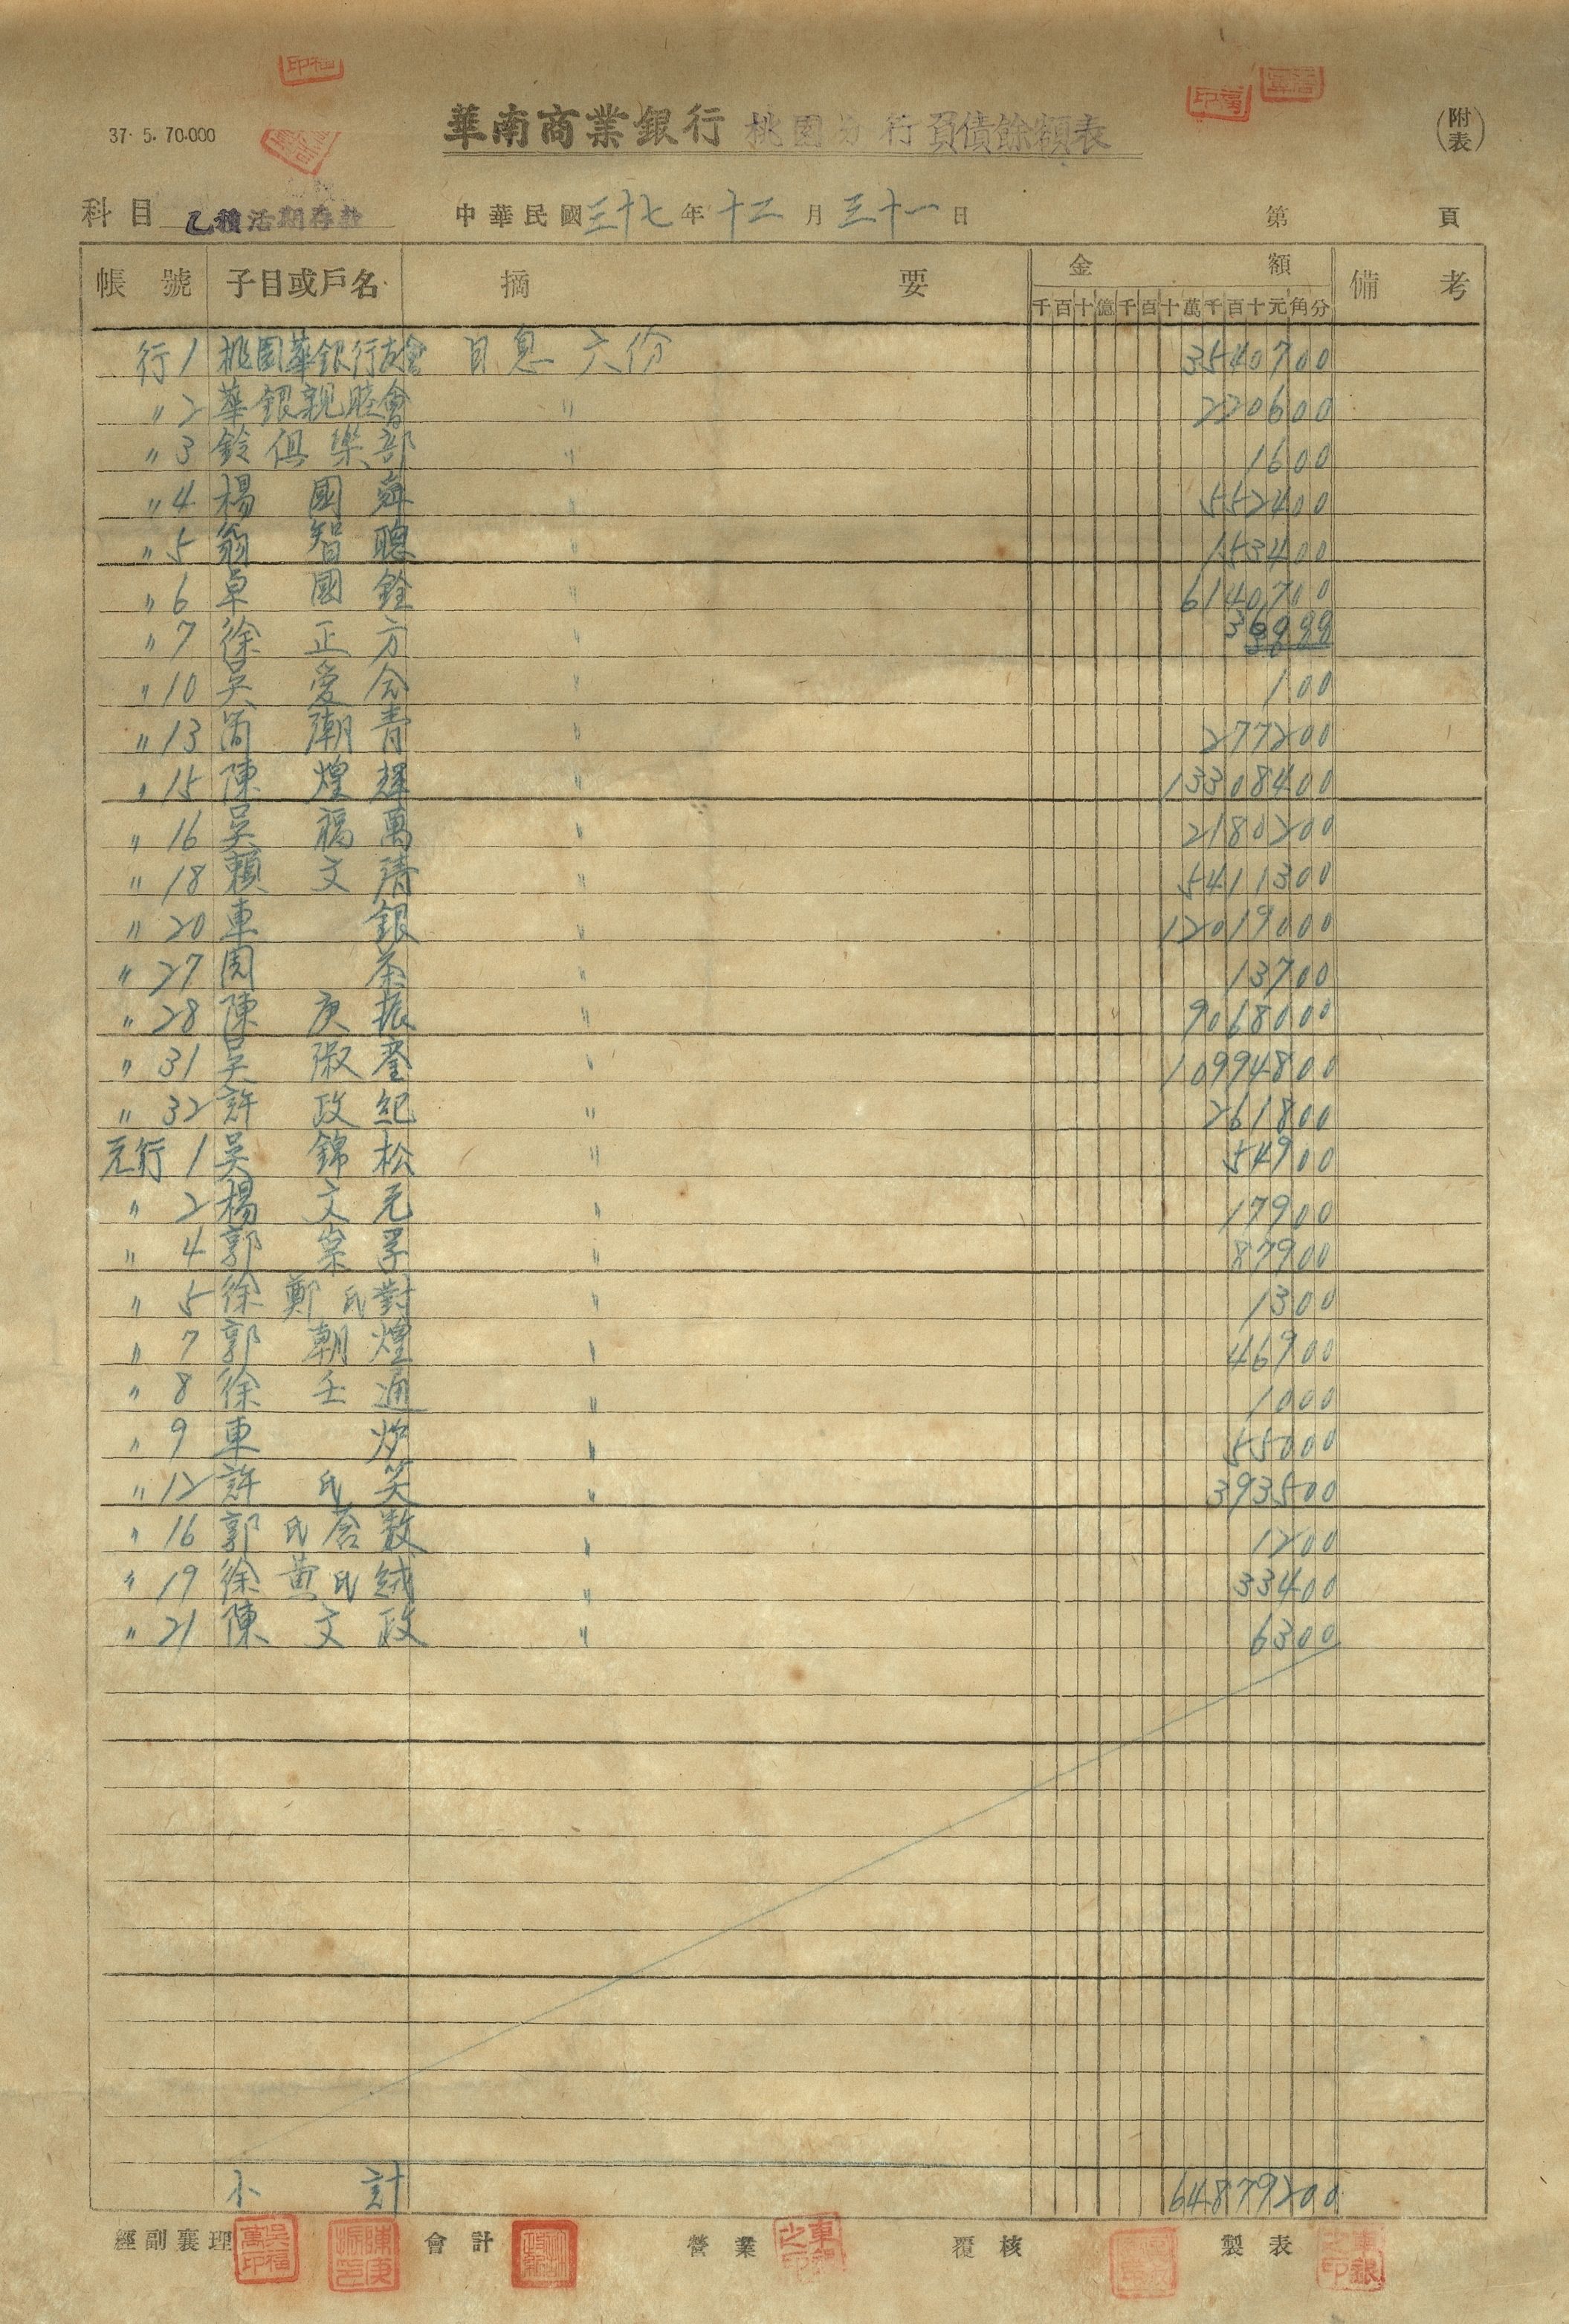 37. 5. 70.000
華南商業銀行 桃園分行 負債餘額表
(附表)
科目 乙種活期存款 中華民國三十七年十二月三十一日 第 頁
帳號 子目或戶名 摘要 金額 備考
千百十億千百十萬千百十元角分
行1 桃園華銀行友會 日息 六份 3540700
〃2 華銀親睦會 〃 220600
〃3 鈴俱樂部 〃 1600
〃4 楊國 〃 552400
〃5 翁智聰 〃 153400
〃6 卓國銓 〃 6140700
〃7 徐正方 〃
〃10 吳愛 〃 100
〃13 潮青 〃 277200
〃15 陳煌輝 〃 13308400
〃16 吳福萬 〃 2180200
〃18 賴文清 〃 5411300
〃20 車銀 〃 12019000
〃27 周茶 〃 13700
〃28 陳庚振 〃 9068000
〃31 吳淑奎 〃 10994800
〃32 許政紀 〃 261800
元行1 吳錦松 〃 54900
〃2 楊文元 〃 17900
〃4 郭 〃 87900
〃5 徐鄭氏對 〃 1300
〃7 郭朝煌 〃 46900
〃8 徐壬通 〃 1000
〃9 車炉 〃 55000
〃12 許氏笑 〃 393500
〃16 郭氏 数 〃 1200
〃19 徐黄氏絨 〃 33400
〃21 陳文政 〃 6300
小計 64879200
經副襄理 吳福萬印 陳庚振 會計 營業 車銀之印 覆核 製表 車銀之印